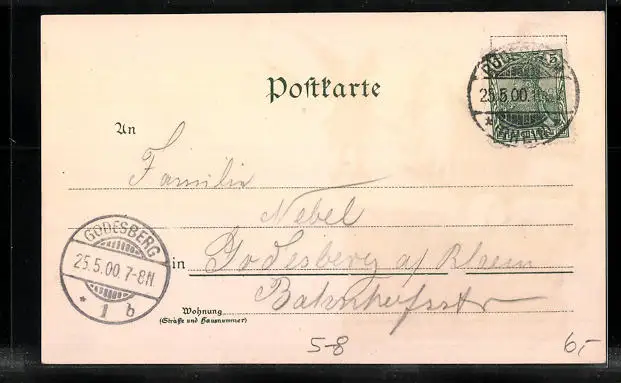 Postkarte
5
25.5.00.
(RHEIN)
An
Familie
Nebel
GODESBERG
25.5.00.7-8N.
* 1 b
in Godesberg a/ Rhein
Bahnhofsstr
Wohnung
(Straße und Hausnummer)
5-8
6,-